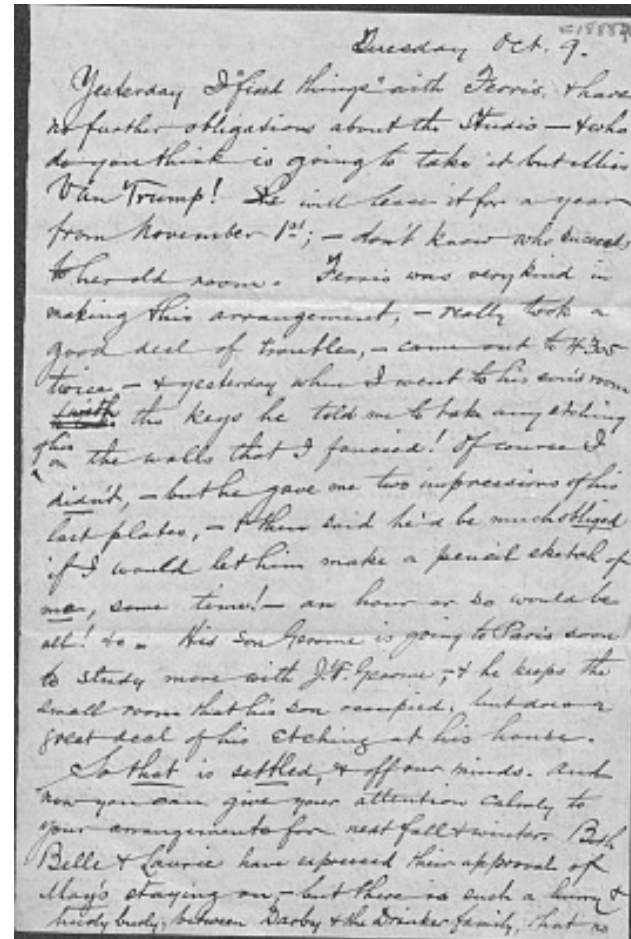 c1888
Tuesday Oct. 9.
Yesterday I "fixed things" with Ferris, & have
no further obligations about the Studio — & who
do you think is going to take it but Miss
Van Trump! She will lease it for a year
from November 1st; — don't know who succeeds
to her old room. Ferris was very kind in
making this arrangement, — really took a
good deal of trouble, — came out to 4305
twice, — & yesterday when I went to his son's room
with the keys he told me to take any etching
of his
on the walls that I fancied! Of course I
didn't, — but he gave me two impressions of his
last plates, — & then said he'd be much obliged
if I would let him make a pencil sketch of
me, some time! — an hour or so would be
all! &c. His son Gerome is going to Paris soon
to study more with J. Gerome, — & he keeps the
small room that his son occupied, but does a
great deal of his etching at his house.
So that is settled, & off our minds. And
now you can give your attention calmly to
your arrangements for next fall & winter. Both
Belle & Laurie have expressed their approval of
May's staying on, — but there is such a hurry &
hurdy burdy, between Darby & the Drinker family, that no